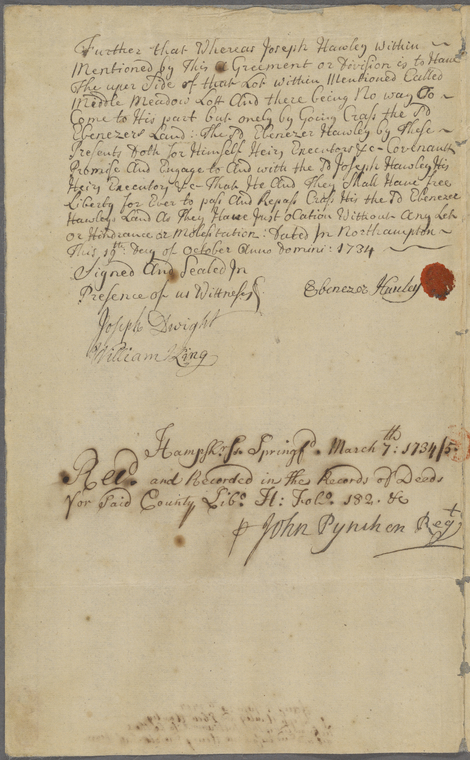 Further that Whereas Joseph Hawley Within
Mentioned by This aGreement or Division is to Have
The uper Side of that Lot Within Mentioned Called
Middle Meadow Lott And there being No way To
Come to His part but onely by Going Crass the Sd
Ebenezers Land: The Sd Ebenezer Hawley by These
Presents Doth for Himself Heirs Executors &c Covenant
Promise And Engage to And with the Sd Joseph Hawley His
Heirs Executors &c That He And They Shall Have free
Liberty for Ever to pass And Repass Crass His the Sd Ebenezer
Hawleys Land As They Have Just oCation Without Any Let
or Hindrance or Molestation: Dated In Northampton
This 15th: Day of October Anno Domini: 1734
Signed And Sealed In
Presence of us Wittness
Ebenezer Hawley
Joseph Dwight
William King
Hampshr. Ss. Springfd. March 7th: 1734/5.
Recd. and Recorded in the Records of Deeds
for Said County Libo. H: Folo. 182. &c
John Pynchon Regt